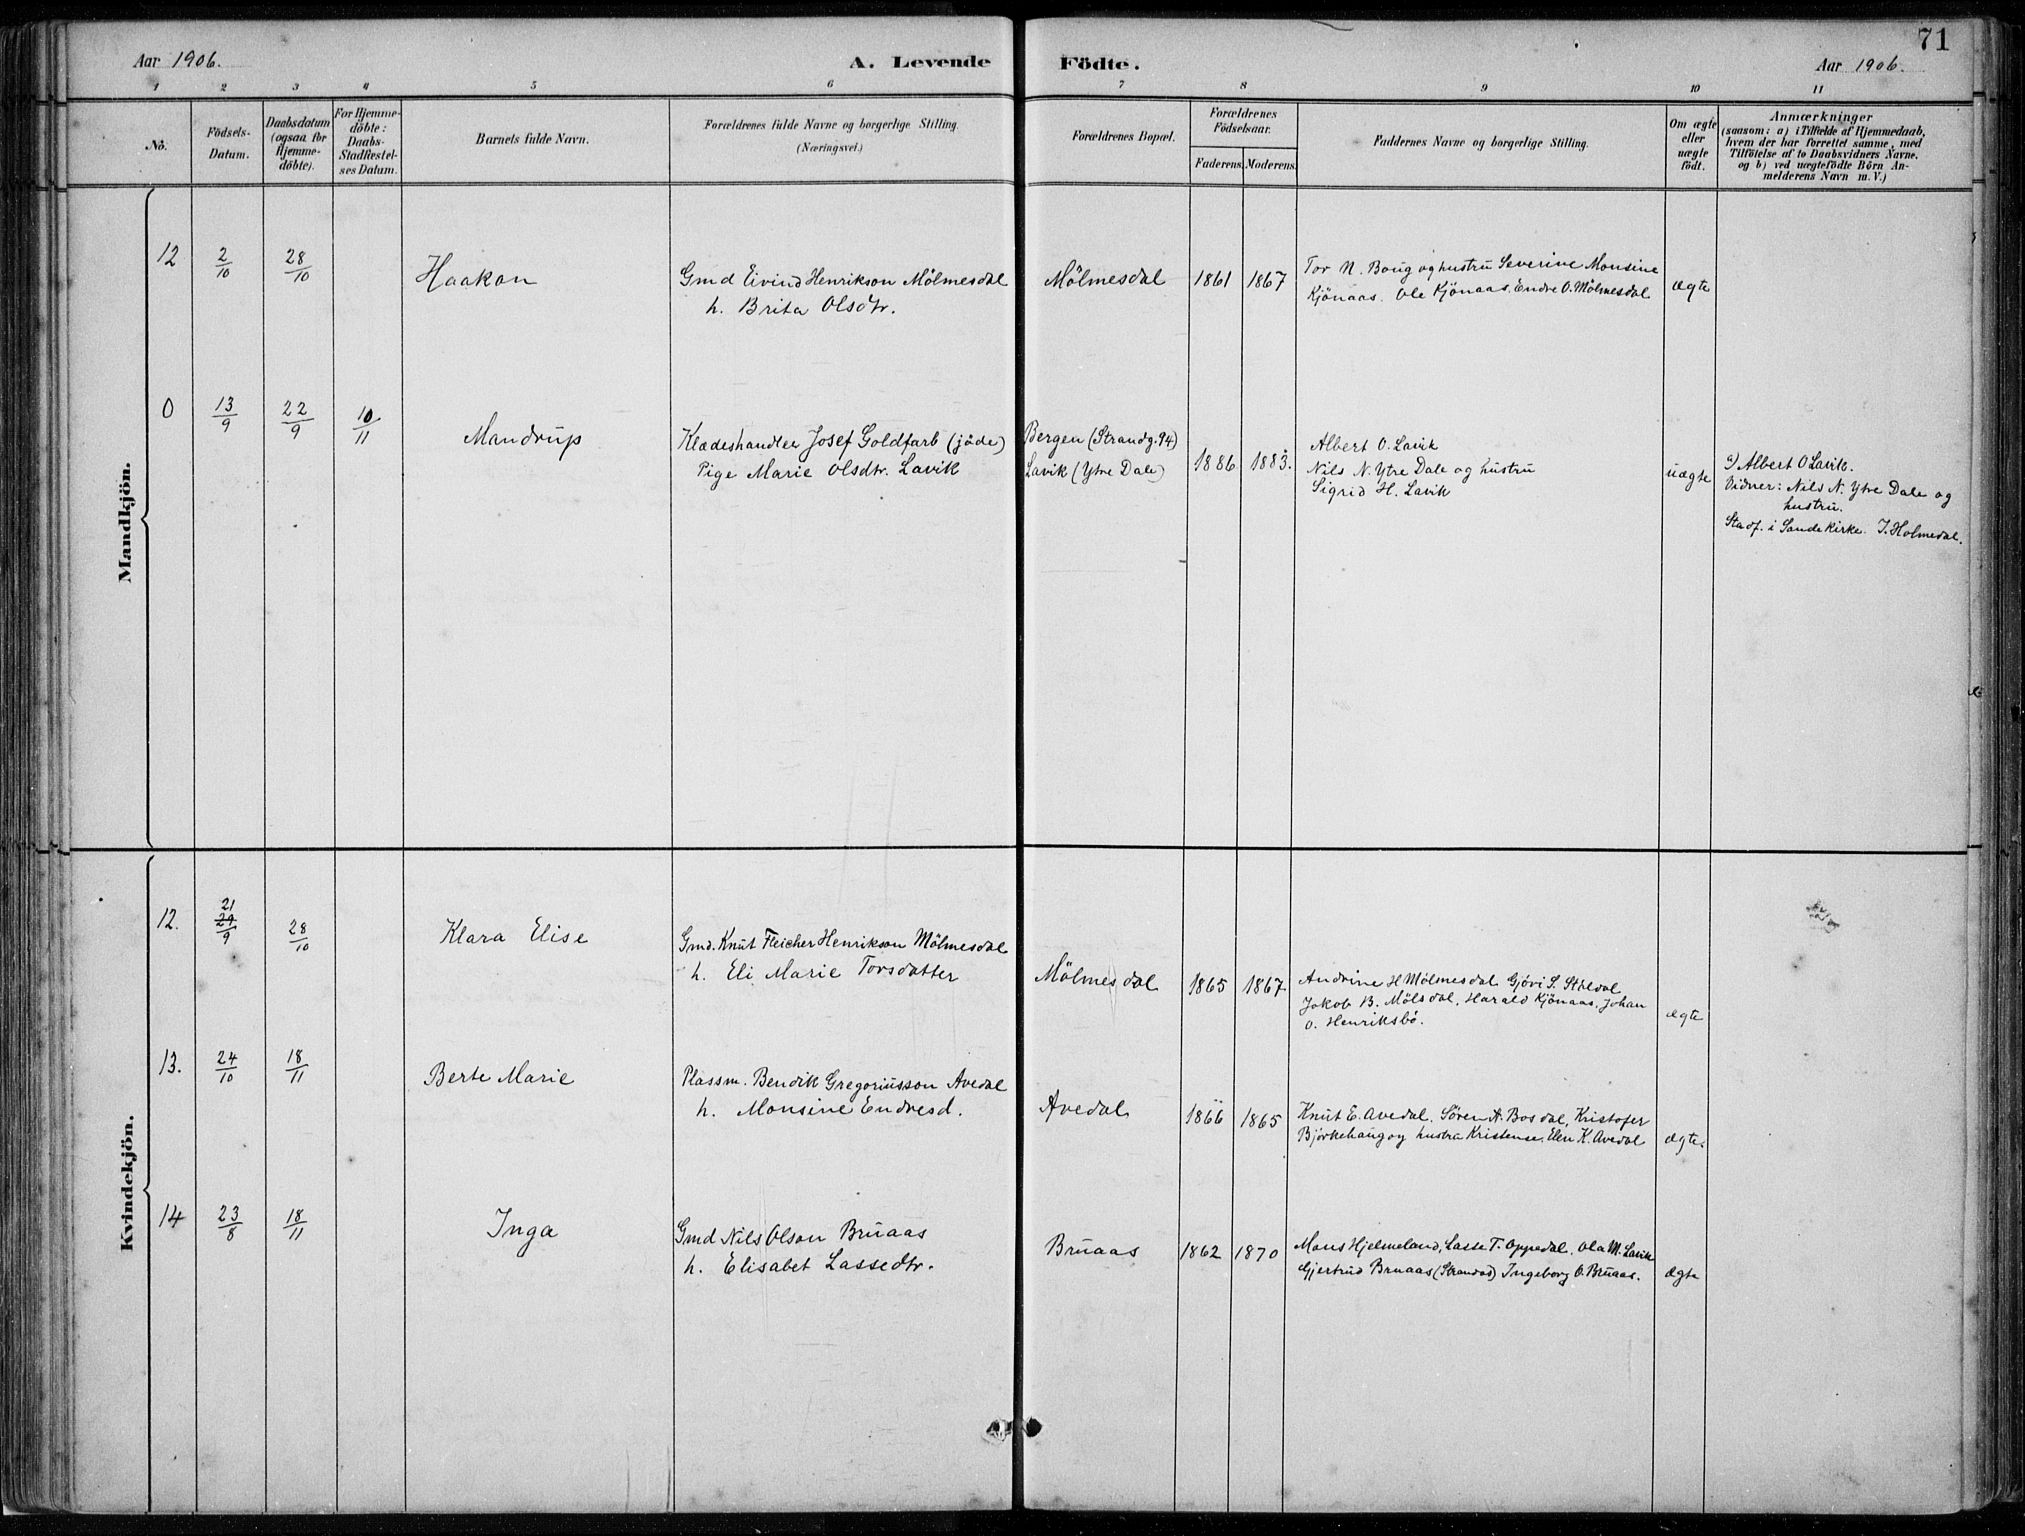 71
Aar 1906.
A. Levende Födte.
Aar 1906.
1 2 3 4 5 6 7 8 9 10 11
No.
Födsels-Datum.
Daabsdatum (ogsaa for Hjemme-döbte).
For Hjemme-döbte: Daabs-Stadfæstel-ses Datum.
Barnets fulde Navn.
Forældrenes fulde Navne og borgerlige Stilling.
(Næringsvei.)
Forældrenes Bopæl.
Forældrenes Födselsaar.
Faderens. Moderens.
Faddernes Navne og borgerlige Stilling.
Om ægte eller uægte födt.
Anmærkninger
(saasom: a) i Tilfælde af Hjemmedaab,
hvem der har forrettet samme, med
Tilföielse af to Daabsvidners Navne,
og b) ved uægtefödte Börn An-
melderens Navn m. V.)
Mandkjön.
12 2/10 28/10 Haakon
Gmd Eivind Henrikson Mölmesdal
h. Brita Olsdtr.
Mölmesdal 1861 1867
Tor N. Boug og hustru Severine Monsine
Kjönaas. Ole Kjönaas. Endre O. Mölmesdal
ægte
0 13/9 22/9 10/11 Mandrup
Klædeshandler Josef Goldfarb (jöde)
Pige Marie Olsdtr. Lavik
Bergen (Strandg. 94)
Lavik (Ytre Dale)
1886 1883.
Albert O. Lavik
Nils N. Ytre Dale og hustru
Sigrid H. Lavik
uægte
a) Albert O Lavik.
Vidner: Nils N. Ytre Dale og
hustru.
Stadf. i Sande Kirke. J. Holmedal.
Kvindekjön.
12. 21 29/9 28/10 Klara Elise
Gmd. Knut Fleicher Henrikson Mölmesdal
h. Eli Marie Torsdatter
Mölmesdal 1865 1867
Andrine H Mölmesdal Gjöri S. Stöldal
Jakob B. Mölsdal, Harald Kjönaas, Johan
O. Henriksbö.
ægte
13. 24/10 18/11 Berte Marie
Plassm. Bendik Gregoriusson Avedal
h. Monsine Endresd.
Avedal 1866 1865
Knut E. Avedal. Sören A. Bosdal, Kristofer
Björkehaug og hustru Kristense, Elen K. Avedal
ægte.
14 23/8 18/11 Inga
Gmd Nils Olson Bruaas
h. Elisabet Lassedtr.
Bruaas 1862 1870
Mons Hjelmeland, Lasse T. Oppedal, Ola M. Lavik
Gjertrud Bruaas (Strandos) Ingeborg O. Bruaas.
ægte